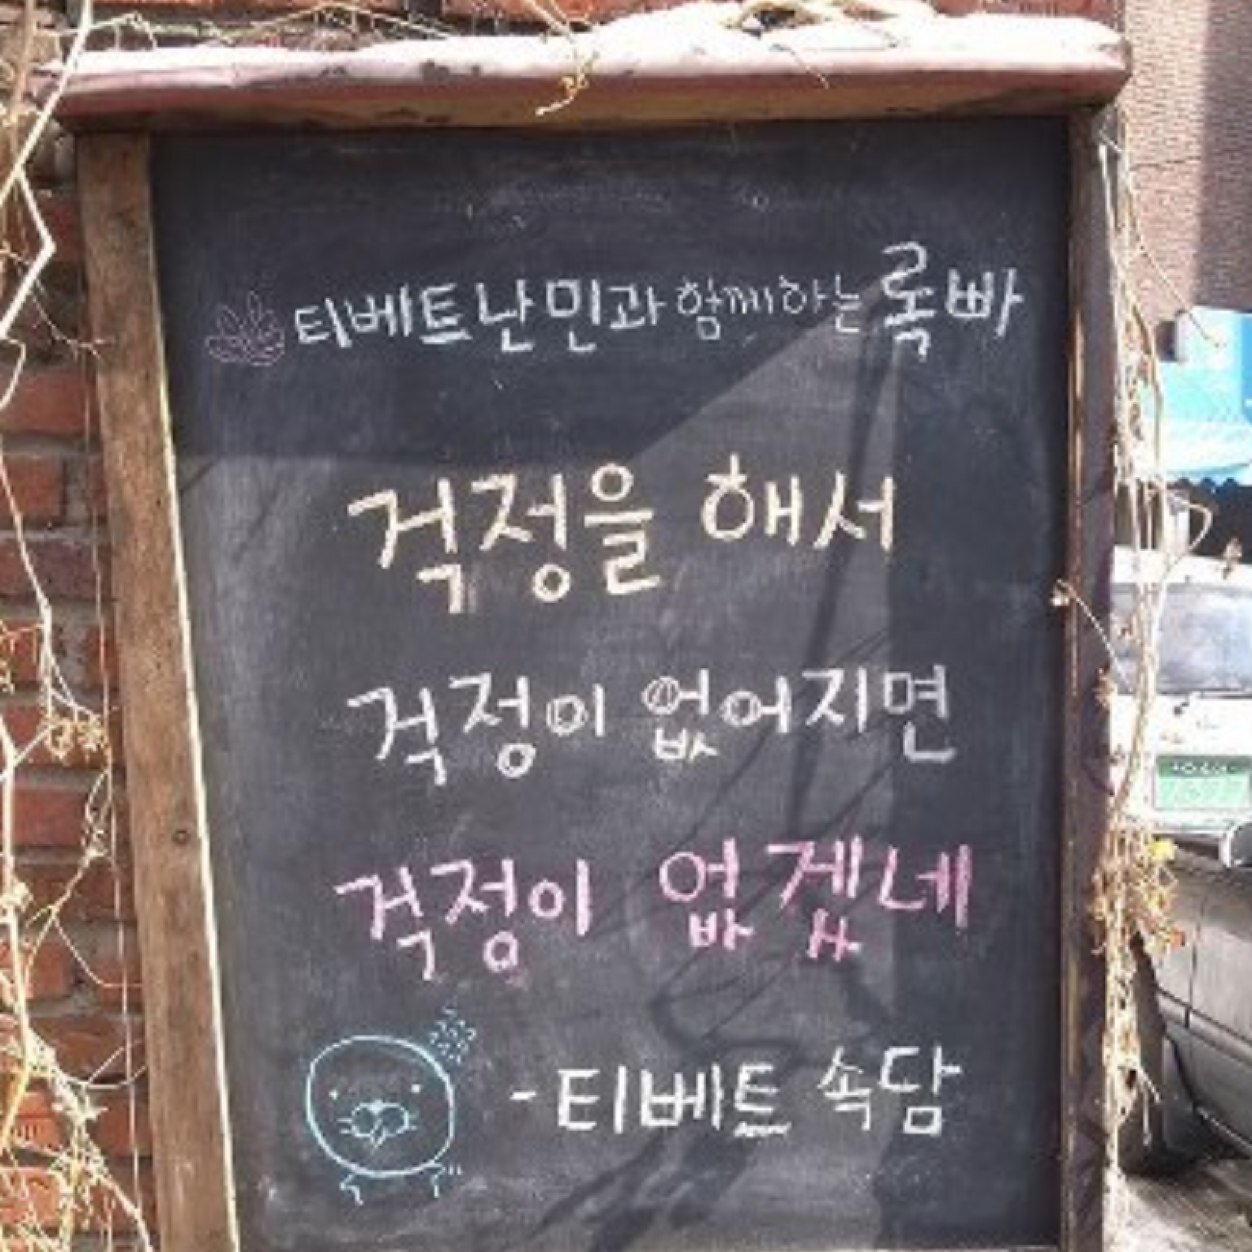 티베트난민과 함께하는 록빠
걱정을 해서
걱정이 없어지면
걱정이 없겠네
- 티베트 속담